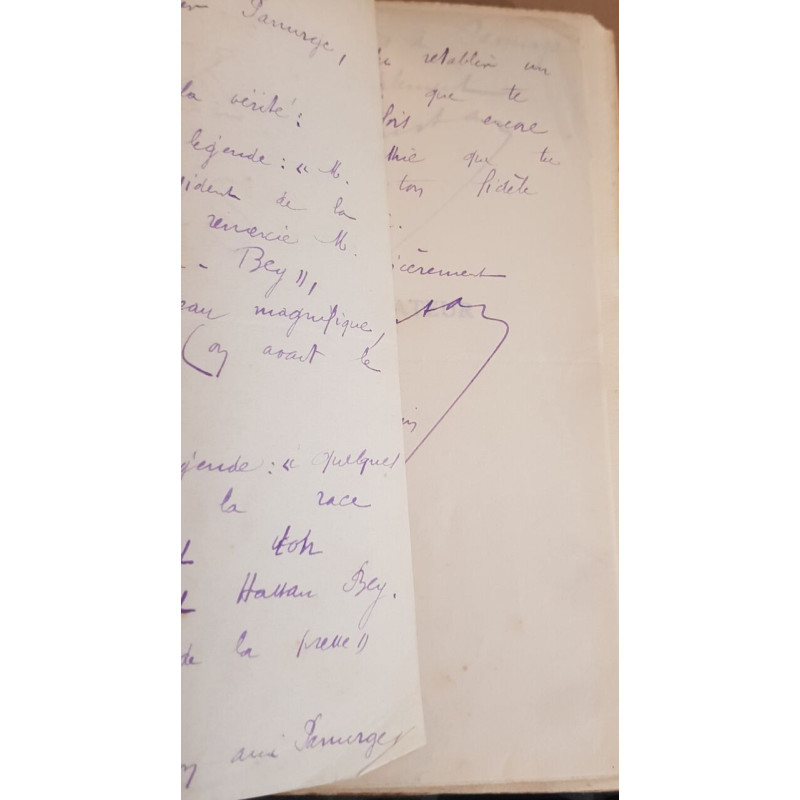 Panurge,
la vérité:
légende: « M.
sident de la
remercie M.
- Bey »,
eau magnifique,
( on avait le
gende: « quelques
la race
Hassan Bey.
de la presse »
ami Panurge
rétablir un
que te
fois encore
thie que tu
ton fidèle
cèrement
ATEUR